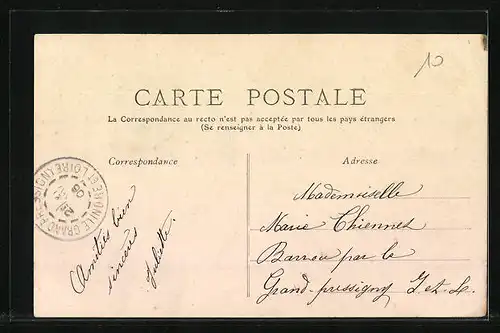 10
CARTE POSTALE
La Correspondance au recto n'est pas acceptée par tous les pays étrangers
(Se renseigner à la Poste)
Correspondance
Adresse
Amitiés bien
sincères
Juliette.
Mademoiselle
Marie Thiennet
Barrou par le
Grand-pressigny I. et. L.
LE GRAND
ET LOIRE